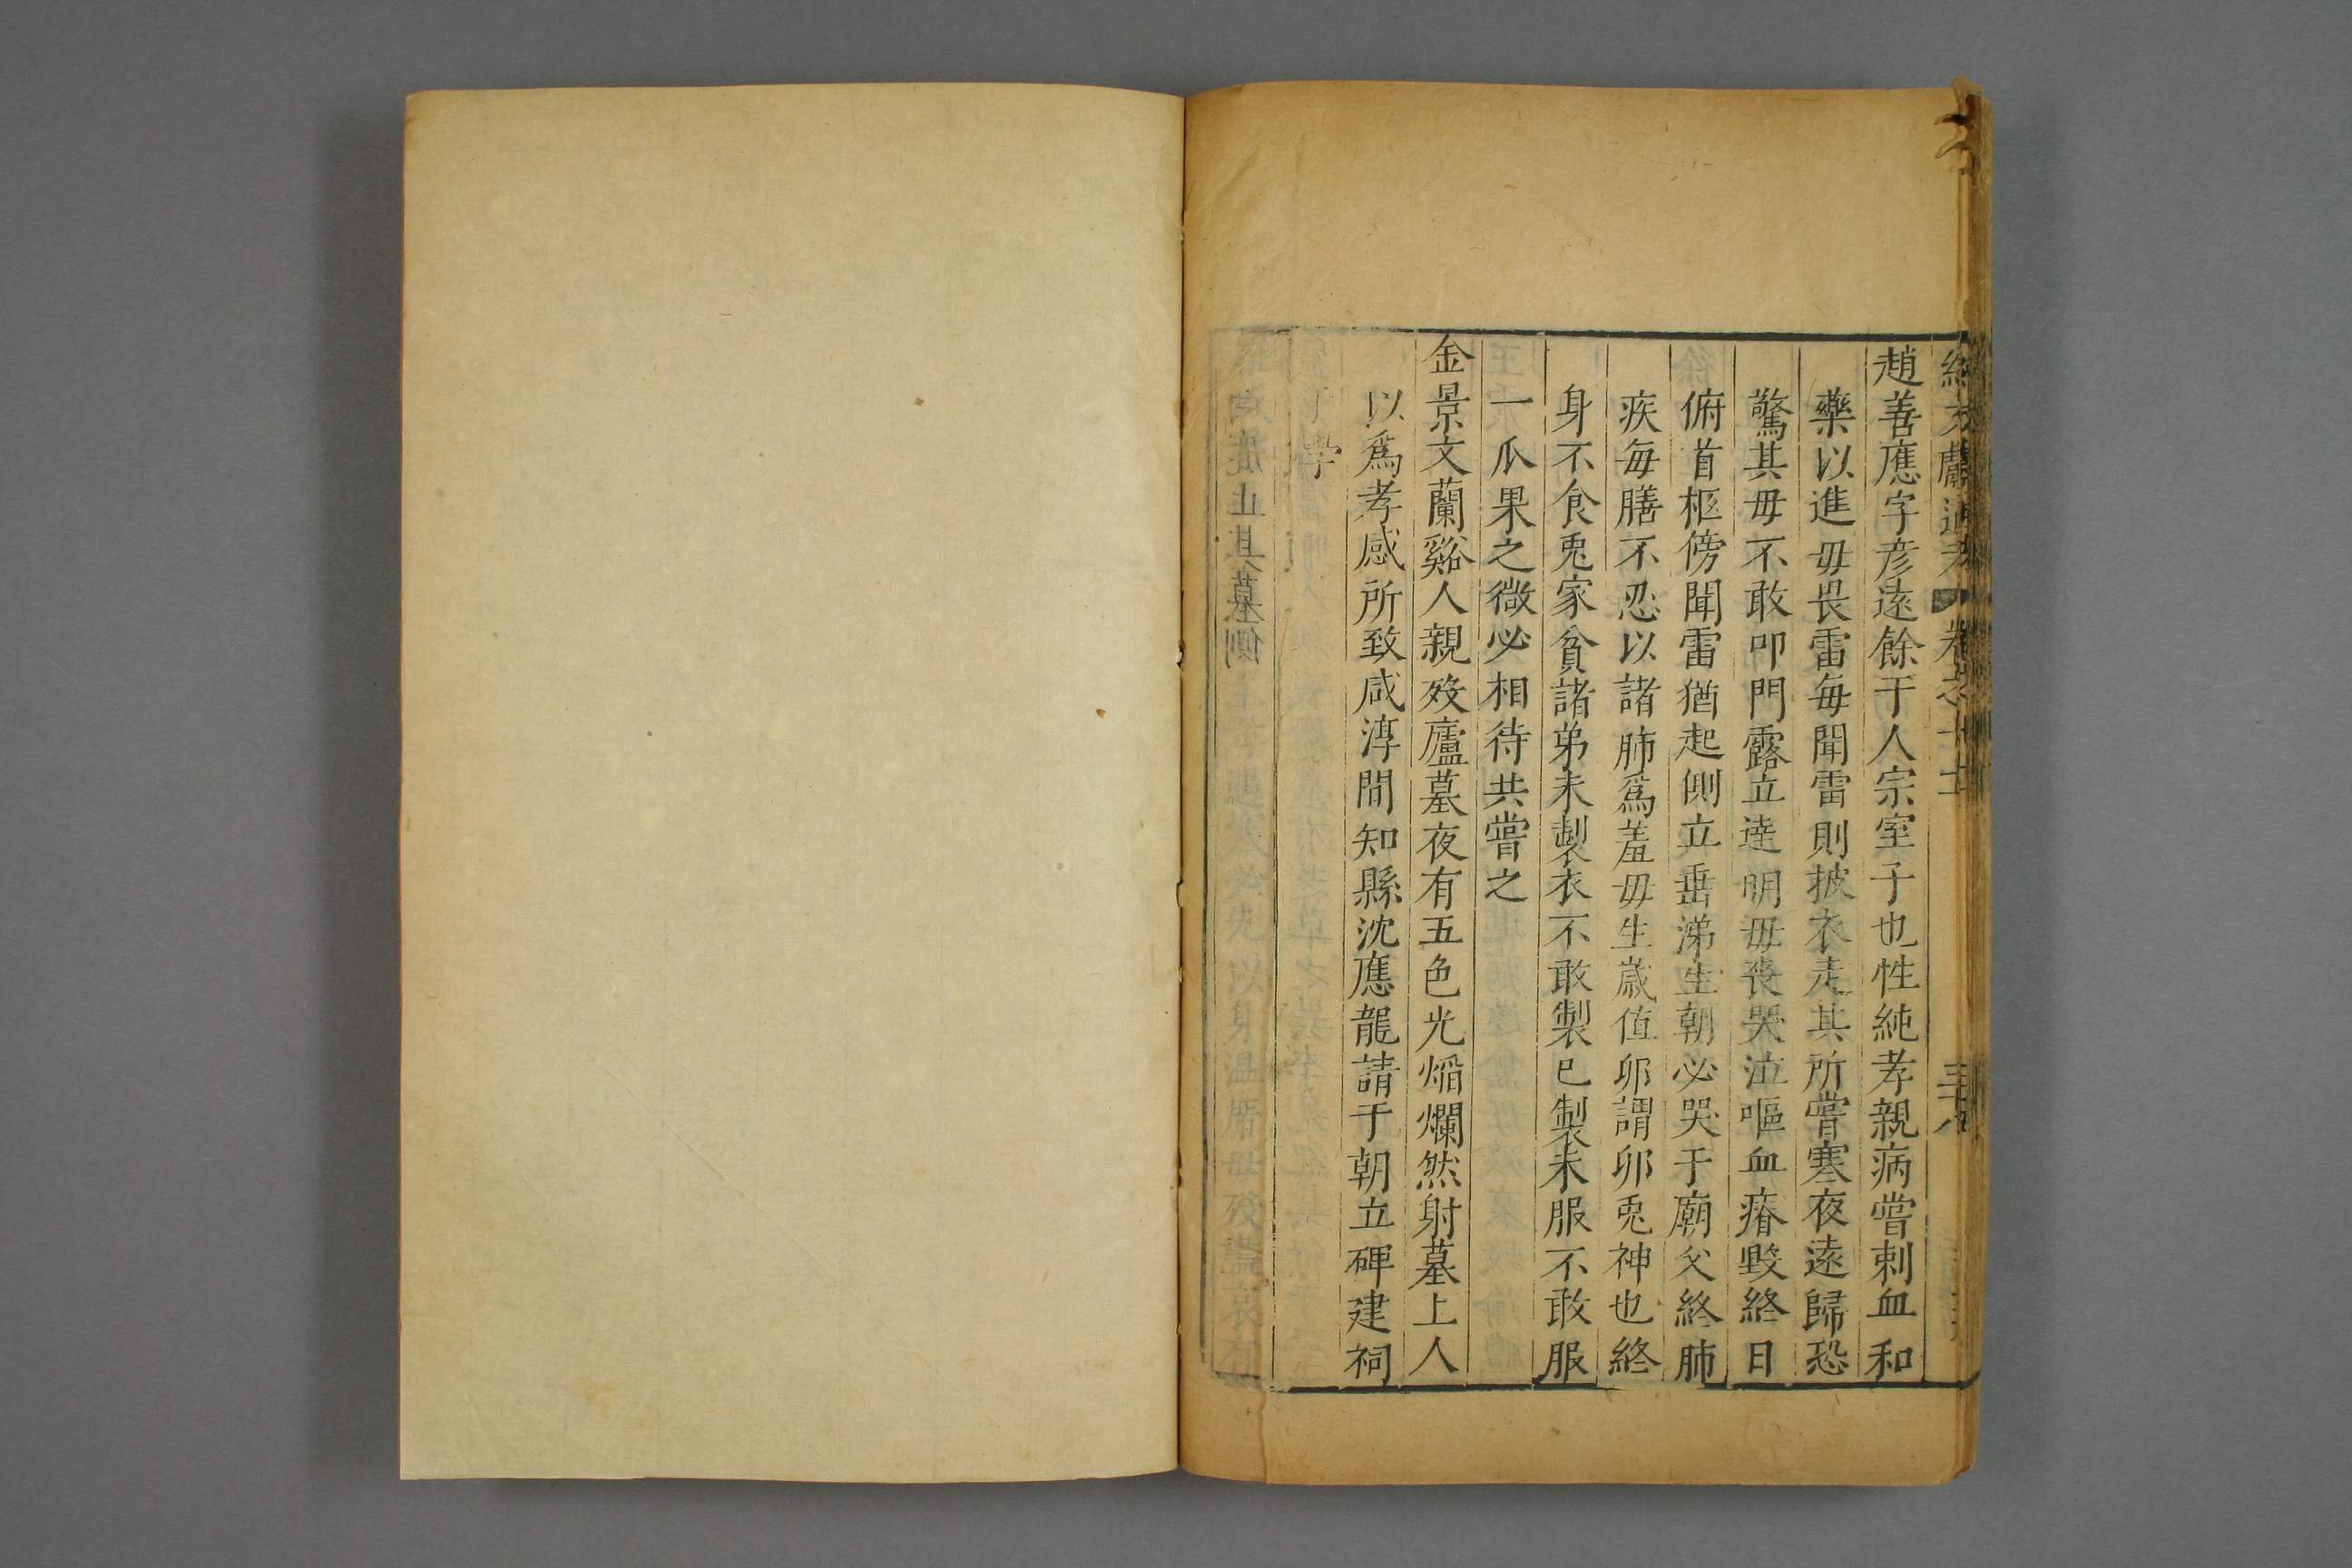 續文獻通考 卷之七十 三十八
趙善應字彦逺餘干人宗室子也性純孝親病嘗刺血和
藥以進毋畏雷每聞雷則披衣走其所嘗寒夜逺歸恐
驚其毋不敢叩門露立逹明毋喪哭泣嘔血瘠毀終日
俯首柩傍聞雷猶起側立垂涕生朝必哭于廟父終肺
疾每膳不忍以諸肺爲羞毋生歲值卯謂卯兎神也終
身不食兎家貧諸弟未製衣不敢製已製未服不敢服
一瓜果之微必相待共嘗之
金景文蘭谿人親歿廬墓夜有五色光熖爛然射墓上人
以爲孝感所致咸淳間知縣沈應龍請于朝立碑建祠
學